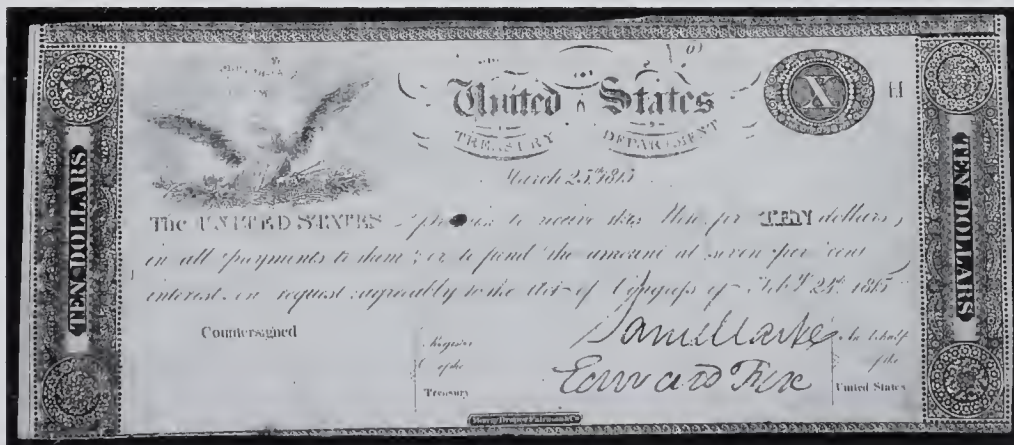 TEN DOLLARS
United States
TREASURY DEPARTMENT
X
H
March 25th 1815
The UNITED STATES to receive this Note for TEN dollars,
in all payments to them, or to fund the amount at seven per cent
interest, on request agreeably to the Act of Congrefs of Feby 24th 1815
Countersigned
Register
of the
Treasury
Saml Clarke
Edward Fox
In behalf
of the
United States
Murray Draper Fairman & Co
TEN DOLLARS